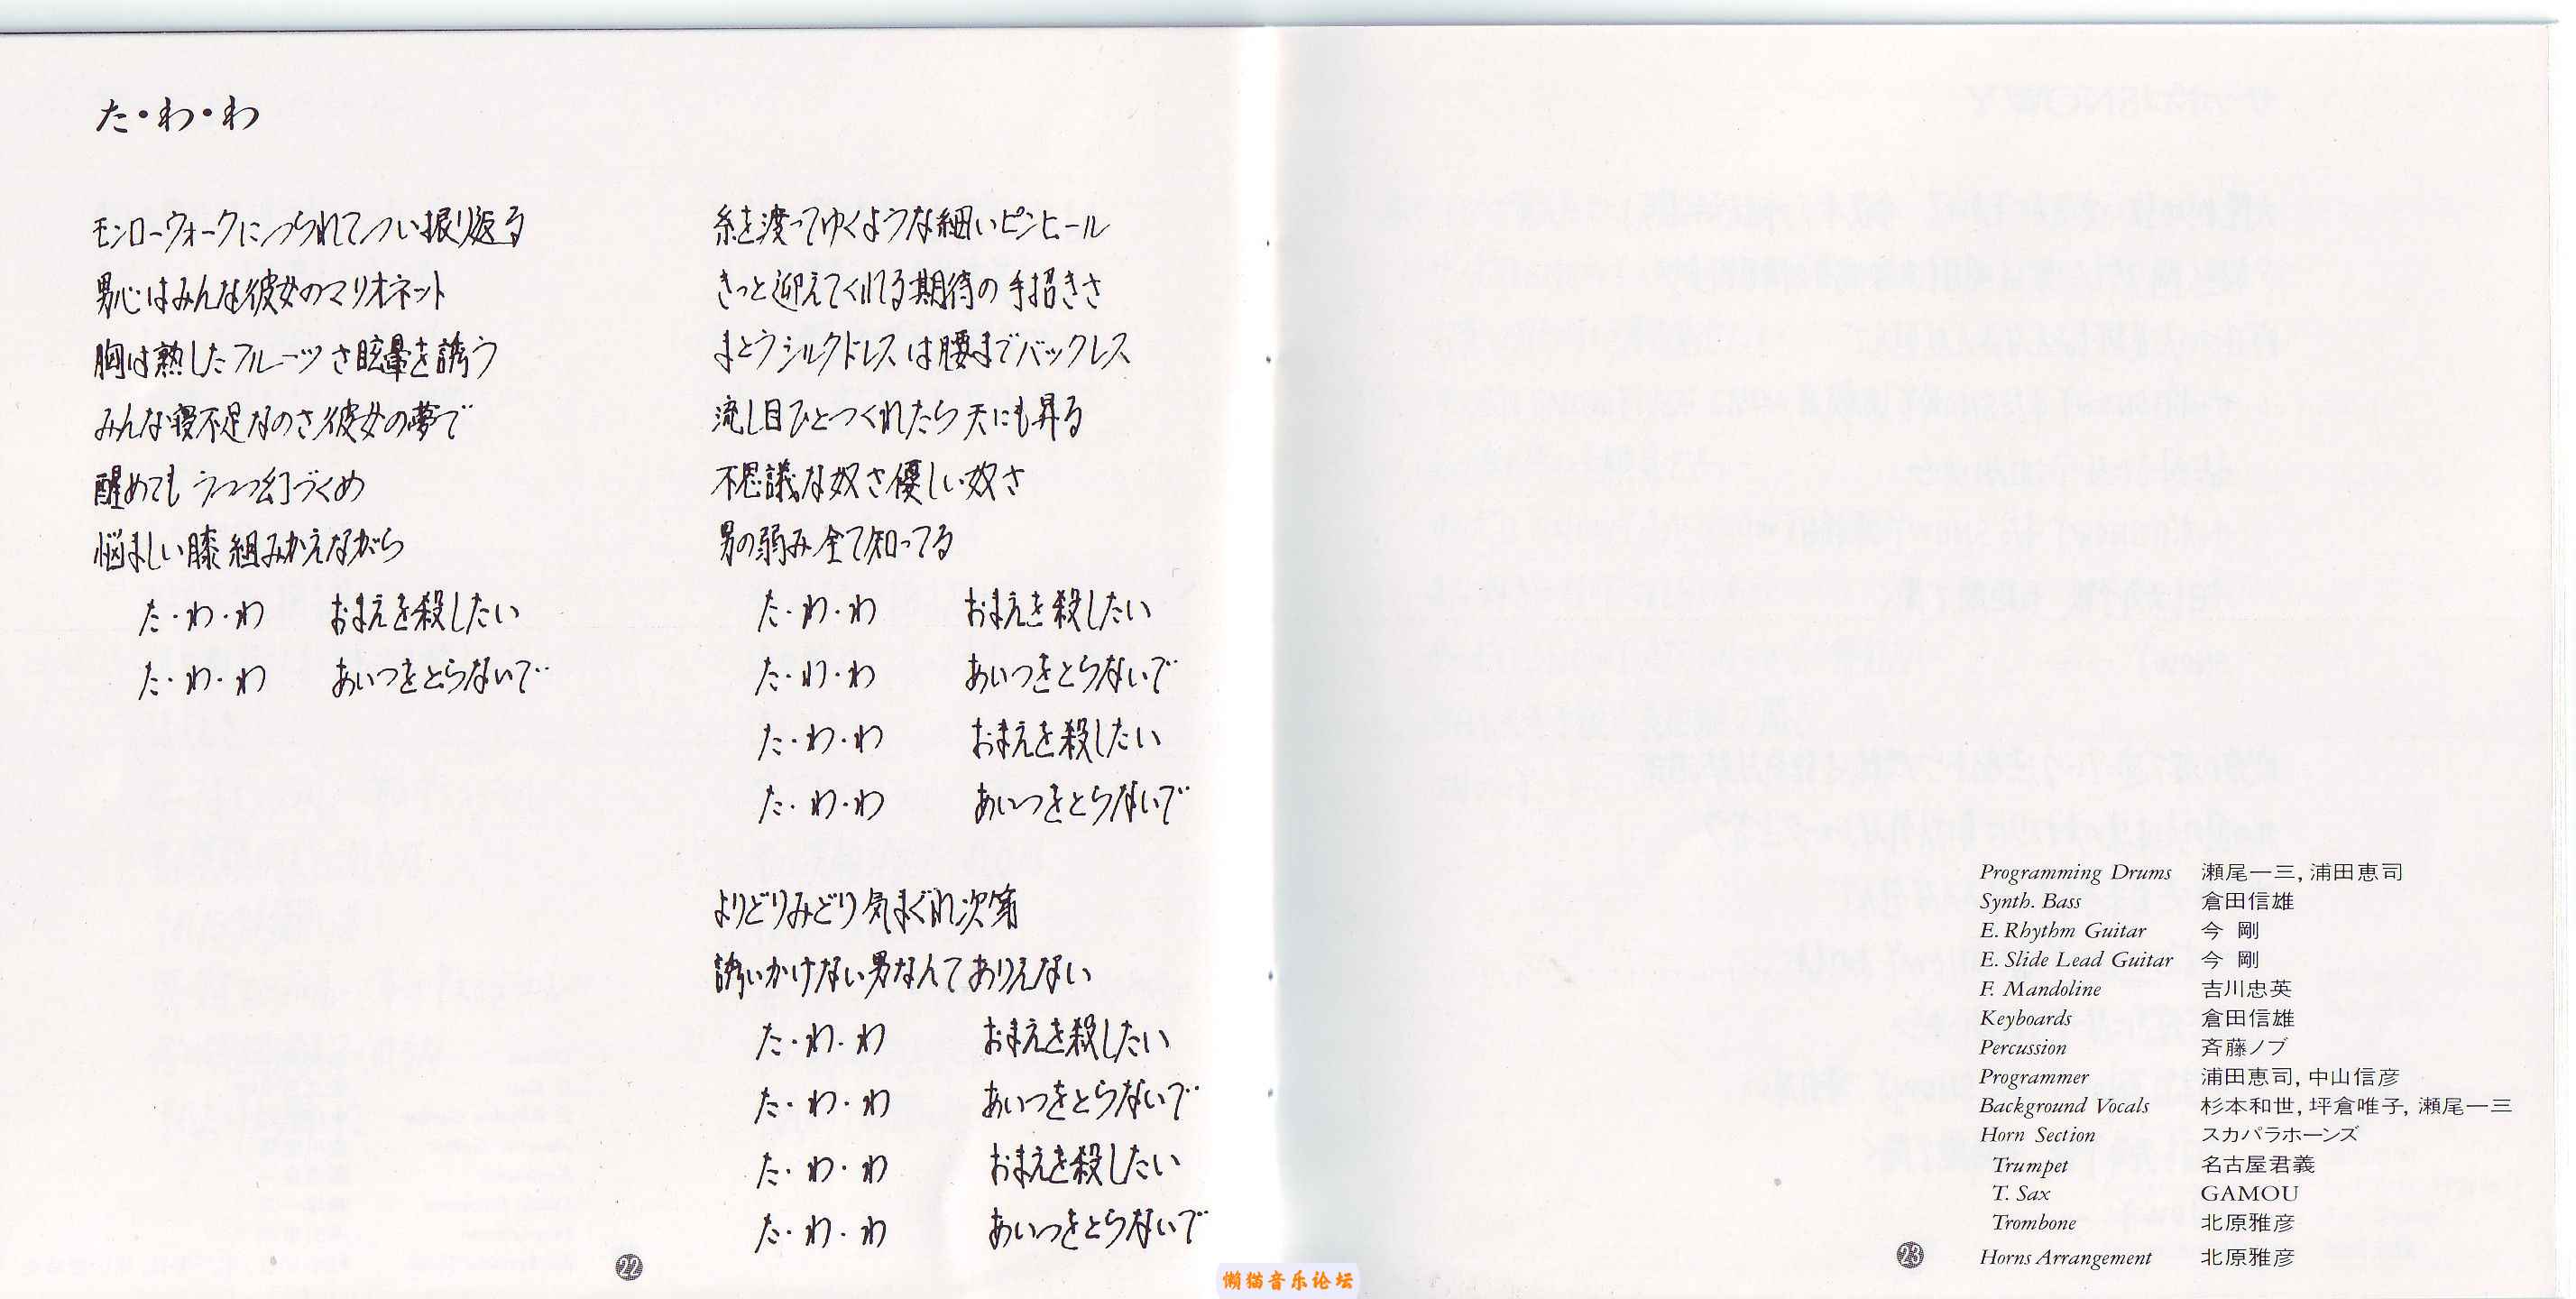 た・わ・わ
モンローウォークにつられてつい振り返る
男心はみんな彼女のマリオネット
胸は熟したフルーツさ眩暈を誘う
みんな寝不足なのさ彼女の夢で
醒めても うつつ幻づくめ
悩ましい膝組みかえながら
た・わ・わ おまえを殺したい
た・わ・わ あいつをとらないで
糸を渡ってゆくような細いピンヒール
きっと迎えてくれる期待の手招きさ
まとうシルクドレスは腰までバックレス
流し目ひとつくれたら天にも昇る
不思議な奴さ優しい奴さ
男の弱み全て知ってる
た・わ・わ おまえを殺したい
た・わ・わ あいつをとらないで
た・わ・わ おまえを殺したい
た・わ・わ あいつをとらないで
よりどりみどり気まぐれ次第
誘いかけない男なんてありえない
た・わ・わ おまえを殺したい
た・わ・わ あいつをとらないで
た・わ・わ おまえを殺したい
た・わ・わ あいつをとらないで
22
Programming Drums 瀬尾一三, 浦田恵司
Synth. Bass 倉田信雄
E. Rhythm Guitar 今 剛
E. Slide Lead Guitar 今 剛
F. Mandoline 吉川忠英
Keyboards 倉田信雄
Percussion 斉藤ノブ
Programmer 浦田恵司, 中山信彦
Background Vocals 杉本和世, 坪倉唯子, 瀬尾一三
Horn Section スカパラホーンズ
Trumpet 名古屋君義
T. Sax GAMOU
Trombone 北原雅彦
Horns Arrangement 北原雅彦
23
懒猫音乐论坛